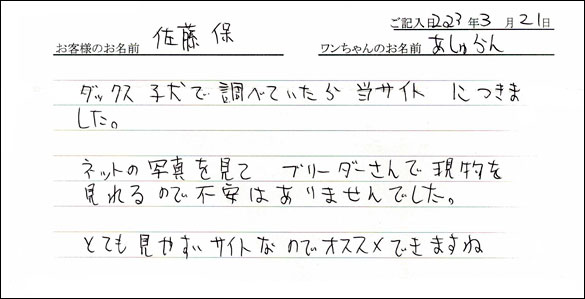 ご記入日2023年3月21日
お客様のお名前 佐藤 保 ワンちゃんのお名前 あしゅらん
ダックス 子犬で調べていたら 当サイト につきま
した。
ネットの写真を見て ブリーダーさんで現物を
見れるので不安はありませんでした。
とても見やすいサイトなのでオススメできますね